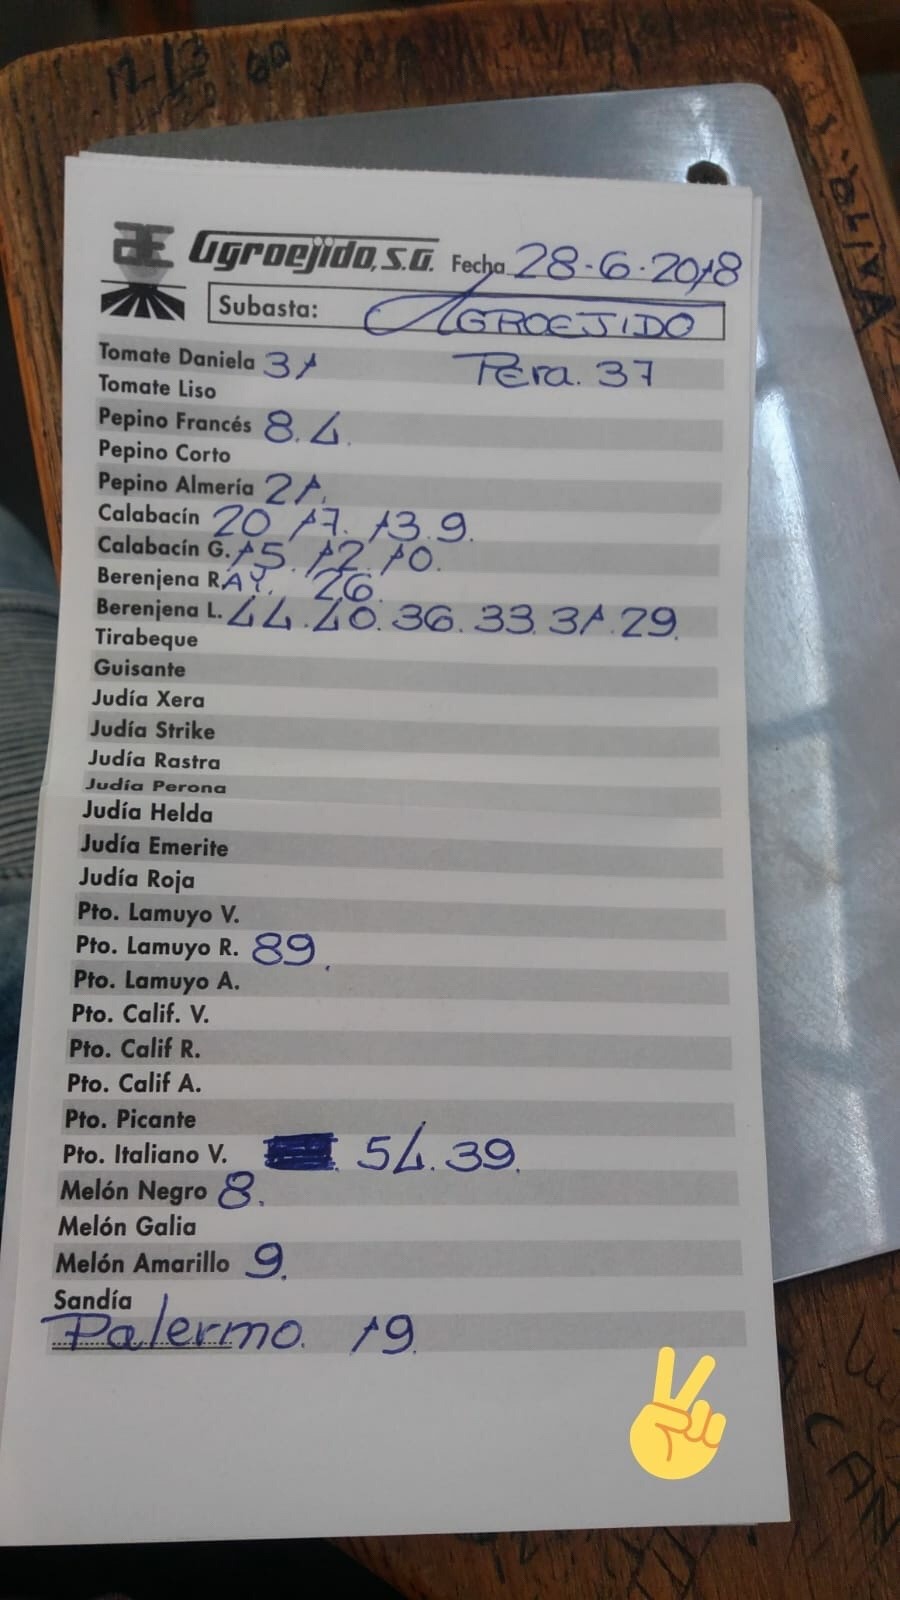 Agroejido, S.A. Fecha 28-6-2018
Subasta: AGROEJIDO
Tomate Daniela 31 Pera. 37
Tomate Liso
Pepino Francés 8. 4.
Pepino Corto
Pepino Almería 21.
Calabacín 20 17. 13. 9.
Calabacín G. 15. 12. 10.
Berenjena RAY. 26.
Berenjena L. 44. 40. 36. 33. 31. 29.
Tirabeque
Guisante
Judía Xera
Judía Strike
Judía Rastra
Judía Perona
Judía Helda
Judía Emerite
Judía Roja
Pto. Lamuyo V.
Pto. Lamuyo R. 89.
Pto. Lamuyo A.
Pto. Calif. V.
Pto. Calif R.
Pto. Calif A.
Pto. Picante
Pto. Italiano V. 54. 39.
Melón Negro 8.
Melón Galia
Melón Amarillo 9.
Sandía
Palermo. 19.